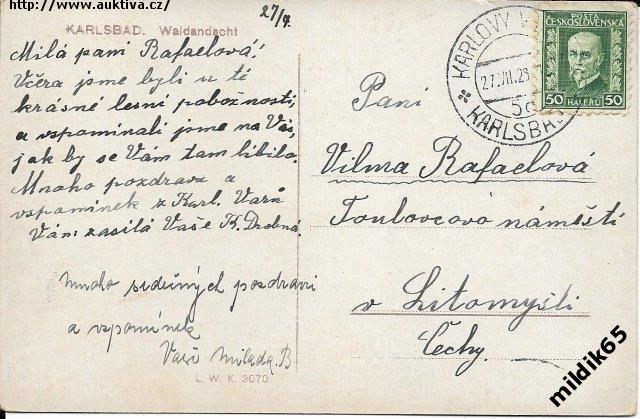 http://www.auktiva.cz/
27/7.
KARLSBAD. Waldandacht
Milá paní Rafaelová!
Včera jsme byli u té
krásné lesní pobožnosti,
a vspomínali jsme na Vás,
jak by se Vám tam líbilo.
Mnoho pozdravů a
vspomínek z Karl. Varů
Vám zasílá Vaše K. Drobná.
Mnoho srdečných pozdravů
a vzpomínek
Vaše Milada. B
L. W. K. 3070
KARLOVY V
27.VII.28
5d
KARLSBA
POSTA
ČESKOSLOVENSKÁ
50 HALÉŘŮ 50
Paní
Vilma Rafaelová
Toulovcovo náměstí
v Litomyšli
Čechy.
mildik65